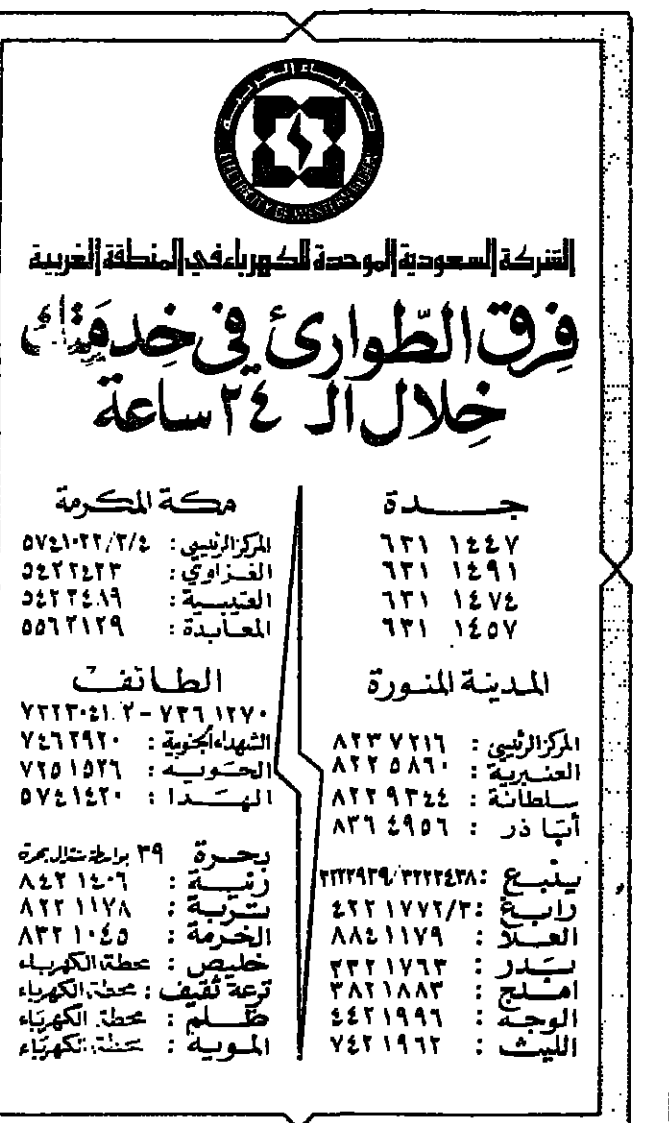 كهرباء الغربية
ELECTRICITY OF WESTERN REGION
الشركة السعودية الموحدة للكهرباء في المنطقة الغربية
فِرق الطّوارئ في
خِلال الـ ٢٤ ساعة
جـــدة
٦٣١ ١٤٤٧
٦٣١ ١٤٩١
٦٣١ ١٤٧٤
٦٣١ ١٤٥٧
المدينة المنورة
المركز الرئيسي : ٨٢٣ ٧٢١٦
العنبرية : ٨٢٢ ٥٨٦٠
سلطانة : ٨٢٢ ٩٣٤٤
أبيا ذر : ٨٣٦ ٤٩٥٦
ينبع : ٣٢٢٢٤٣٨/٣٢٢٢٩٣٩
رابغ : ٤٢٢ ١٧٧٢/٣
العلا : ٨٨٤ ١١٧٩
بدر : ٣٣٢ ١٧٦٣
املج : ٣٨٢ ١٨٨٣
الوجه : ٤٤٢ ١٩٩٦
الليث : ٧٤٢ ١٩٦٢
مكة المكرمة
المركز الرئيسي : ٥٧٤١٠٢٢/٣/٤
الغزاوي : ٥٤٢٢٤٢٣
العتيبية : ٥٤٢٢٤٨٩
المعابدة : ٥٥٦٢١٢٩
الطائف
٧٣٦ ١٢٧٠ –
الشهداء الجنوبية : ٧٤٦٢٩٢٠
الحوية : ٧٢٥١٥٢٦
الهدا : ٥٧٤١٤٢٠
بحرة ٣٩ بواسطة سنترال بحرة
رنية : ٨٤٢ ١٤٠٦
تربة : ٨٢٢ ١١٧٨
الخرمة : ٨٣٢ ١٠٤٥
خليص : محطة الكهرباء
ترعة ثقيف : محطة الكهرباء
ظلم : محطة الكهرباء
المويه : محطة الكهرباء